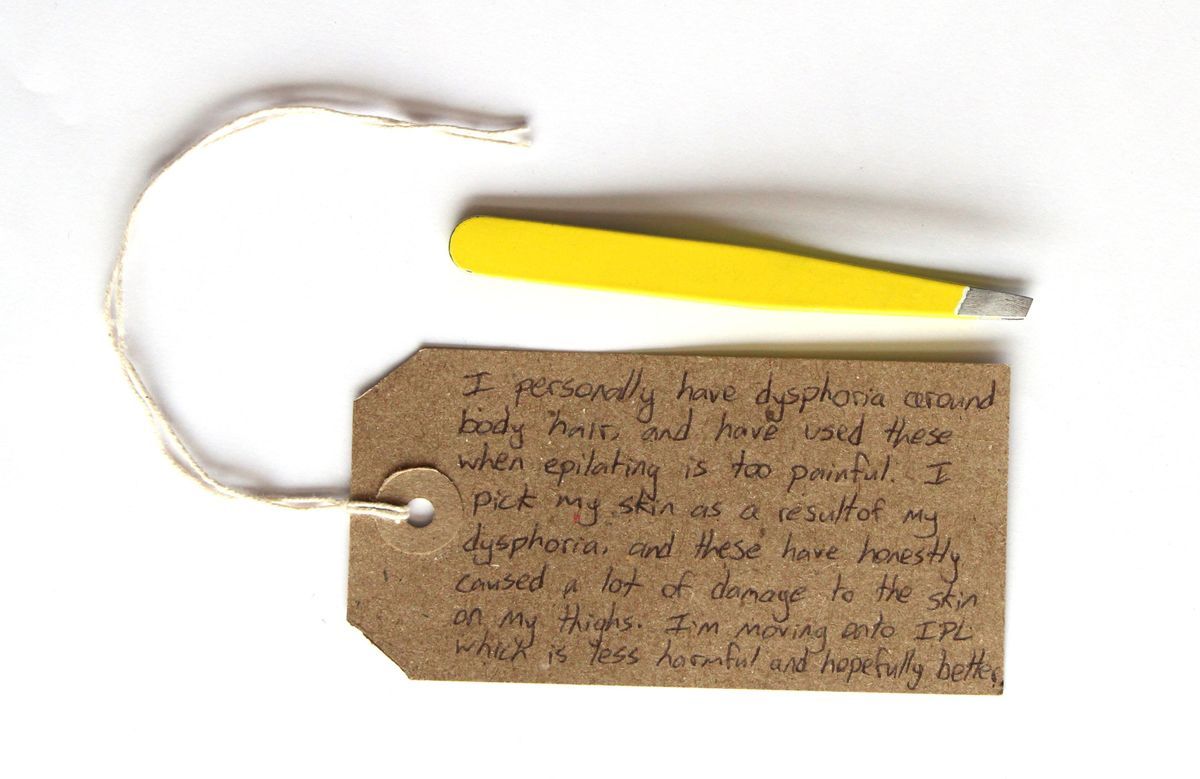 I personally have dysphoria around
body hair, and have used these
when epilating is too painful. I
pick my skin as a result of my
dysphoria, and these have honestly
caused a lot of damage to the skin
on my thighs. I'm moving onto IPL
which is less harmful and hopefully better.